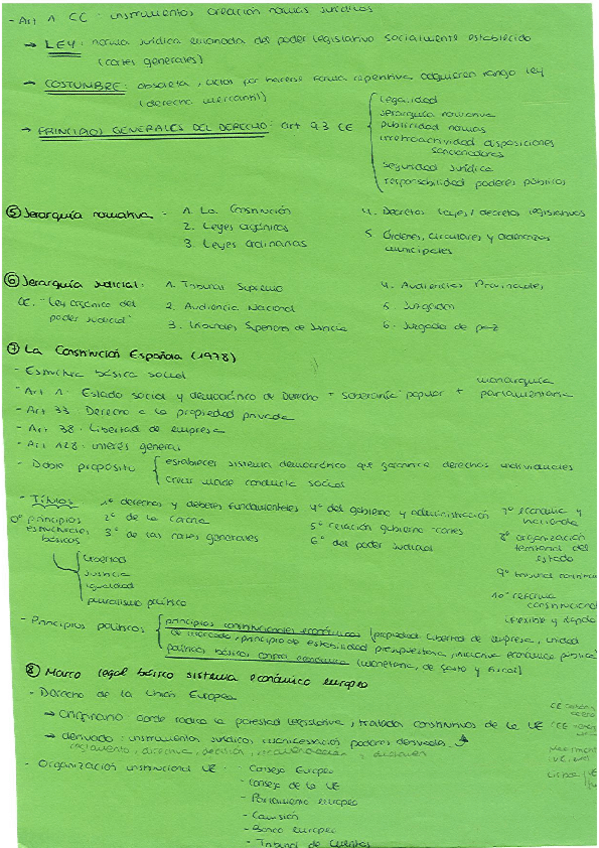 - Art 1 CC : instrumentos creación normas jurídicas
→ LEY: norma jurídica emanada del poder legislativo socialmente establecido
(cortes generales)
→ COSTUMBRE: obsoleta, actos por hacerse forma repetitiva adquieren rango ley
(derecho mercantil)
→ PRINCIPIOS GENERALES DEL DERECHO: art 9.3 CE
legalidad
jerarquía normativa
publicidad normas
irretroactividad disposiciones
sancionadoras
seguridad jurídica
responsabilidad poderes públicos
⑤ Jerarquía normativa -
1. La Constitución
2. Leyes orgánicas
3. Leyes ordinarias
4. Decretos leyes / decretos legislativos
5. Órdenes, circulares y ordenanzas
municipales
⑥ Jerarquía judicial:
CE. "Ley orgánica del
poder judicial"
1. Tribunal Supremo
2. Audiencia Nacional
3. Tribunales Superiores de Justicia
4. Audiencias Provinciales
5. Juzgados
6. Juzgado de paz
⑦ La Constitución Española (1978)
- Estructura básica social
- Art 1. Estado social y democrático de Derecho + soberanía popular + monarquía parlamentaria
- Art 33 Derecho a la propiedad privada
- Art 38. Libertad de empresa
- Art 128. interés general
- Doble propósito
establecer sistema democrático que garantice derechos individuales
crear conducta social
- Títulos
0º principios
estructurales
básicos
libertad
justicia
igualdad
pluralismo político
1º derechos y deberes fundamentales
2º de la corona
3º de las cortes generales
4º del gobierno y administración
5º relación gobierno-cortes
6º del poder judicial
7º economía y
hacienda
8º organización
territorial del
estado
9º tribunal
10º reforma
constitucional
- Principios políticos
principios constitucionales económicos (propiedad, libertad de empresa, unidad
de mercado, principio de estabilidad presupuestaria, iniciativa económica pública)
política básica económica (monetaria, de gasto y fiscal)
⑧ Marco legal básico sistema económico europeo
- Derecho de la Unión Europea
→ originario: donde radica la potestad legislativa, tratados constitutivos de la UE
→ derivado: instrumentos jurídicos poderes derivados
reglamento, directiva, decisión, recomendación, dictamen
- Organización institucional UE:
- Consejo Europeo
- Consejo de la UE
- Parlamento europeo
- Comisión
- Banco europeo
- Tribunal de Cuentas